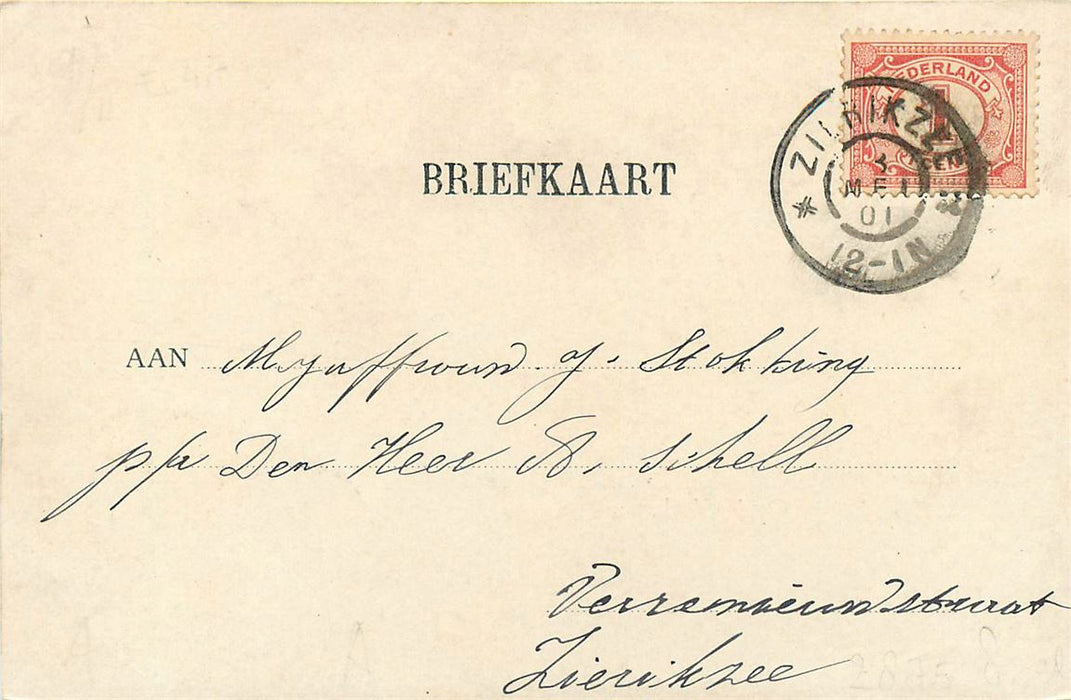 NEDERLAND
1
CENT
ZIERIKZEE
MEI
01
12-1N
BRIEFKAART
AAN Mejuffrouw J. Stokking
p/a Den Heer A. Schell
Verrenieuwstraat
Zierikzee